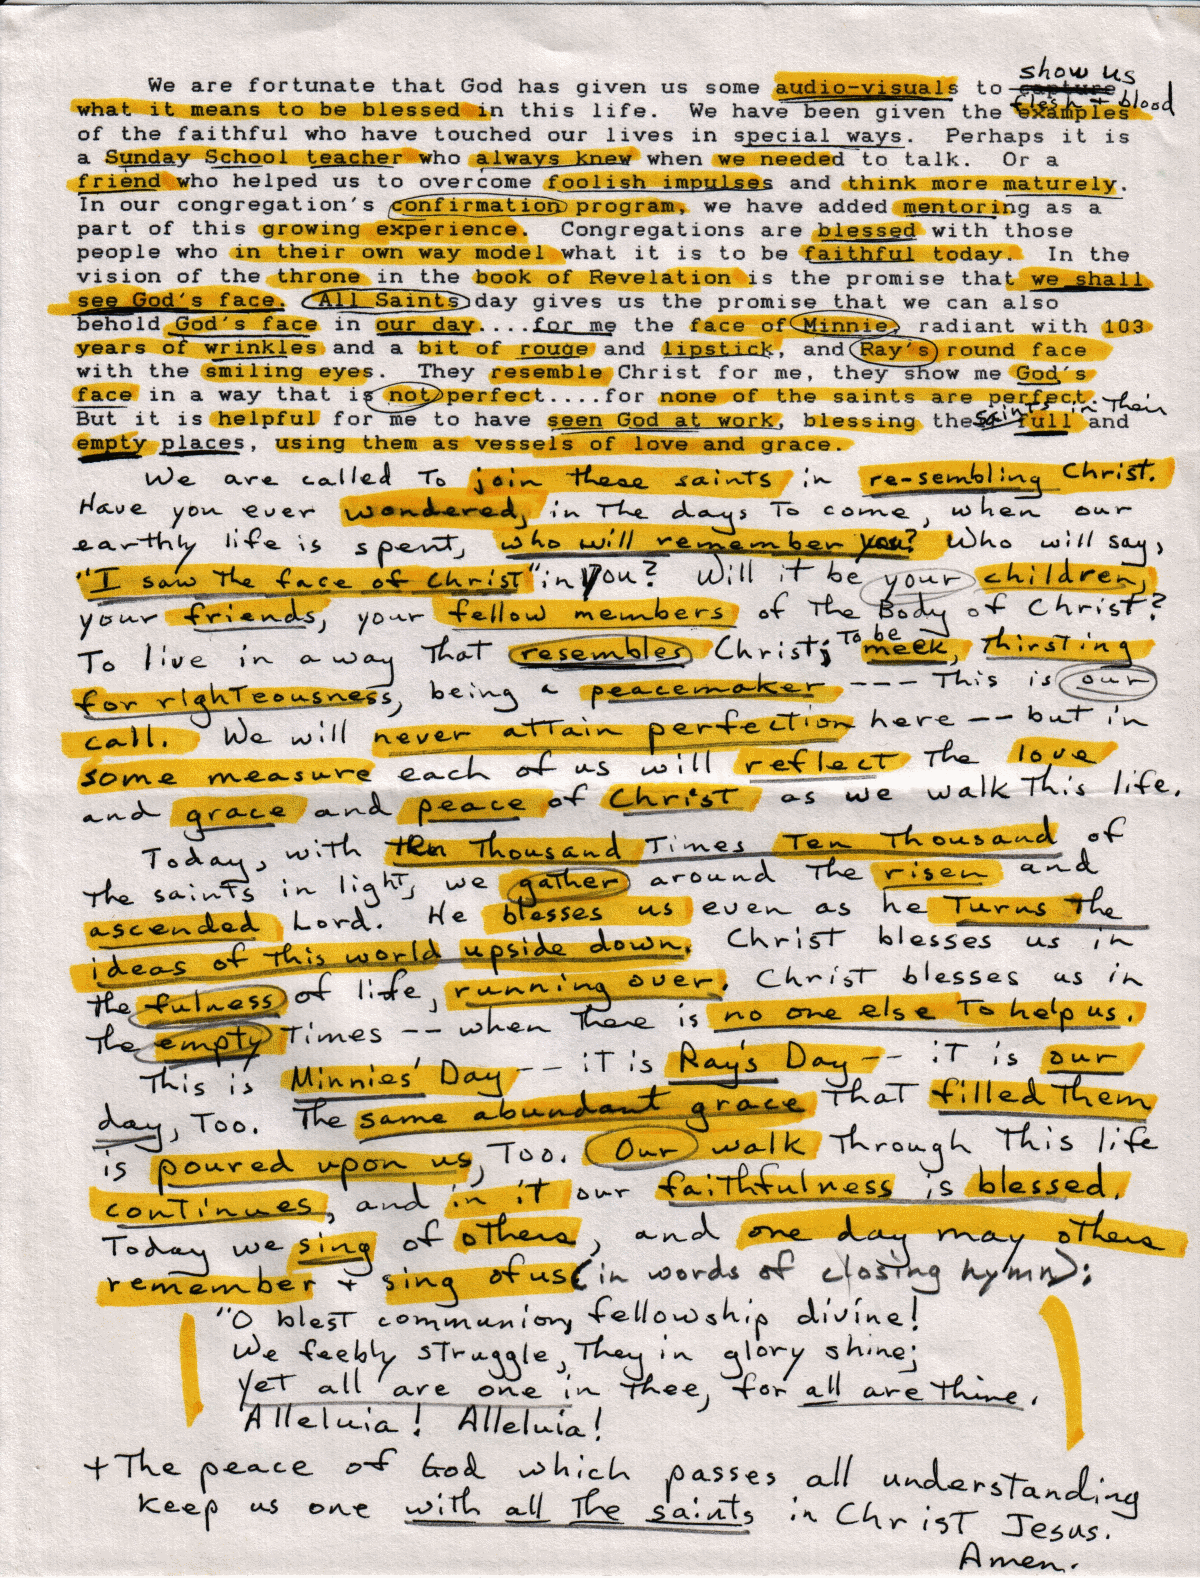 show us
We are fortunate that God has given us some audio-visuals to capture
flesh + blood
what it means to be blessed in this life. We have been given the examples
of the faithful who have touched our lives in special ways. Perhaps it is
a Sunday School teacher who always knew when we needed to talk. Or a
friend who helped us to overcome foolish impulses and think more maturely.
In our congregation's confirmation program, we have added mentoring as a
part of this growing experience. Congregations are blessed with those
people who in their own way model what it is to be faithful today. In the
vision of the throne in the book of Revelation is the promise that we shall
see God's face. All Saints day gives us the promise that we can also
behold God's face in our day....for me the face of Minnie, radiant with 103
years of wrinkles and a bit of rouge and lipstick, and Ray's round face
with the smiling eyes. They resemble Christ for me, they show me God's
face in a way that is not perfect....for none of the saints are perfect.
saints in their
But it is helpful for me to have seen God at work, blessing the full and
empty places, using them as vessels of love and grace.
We are called to join these saints in re-sembling Christ.
Have you ever wondered, in the days to come, when our
earthly life is spent, who will remember you? Who will say,
"I saw the face of Christ" in you? Will it be your children,
your friends, your fellow members of the Body of Christ?
To live in a way that resembles Christ; to be meek, thirsting
for righteousness, being a peacemaker --- this is our
call. We will never attain perfection here -- but in
some measure each of us will reflect the love
and grace and peace of Christ as we walk this life.
Today, with ten thousand times ten thousand of
the saints in light, we gather around the risen and
ascended Lord. He blesses us even as he turns the
ideas of this world upside down. Christ blesses us in
the fulness of life, running over. Christ blesses us in
the empty times -- when there is no one else to help us.
This is Minnies' Day -- it is Ray's Day -- it is our
day, too. The same abundant grace that filled them
is poured upon us, too. Our walk through this life
continues, and in it our faithfulness is blessed.
Today we sing of others, and one day may others
remember + sing of us (in words of closing hymn):
"O blest communion, fellowship divine!
We feebly struggle, they in glory shine;
Yet all are one in thee, for all are thine.
Alleluia! Alleluia!
+ The peace of God which passes all understanding
keep us one with all the saints in Christ Jesus.
Amen.